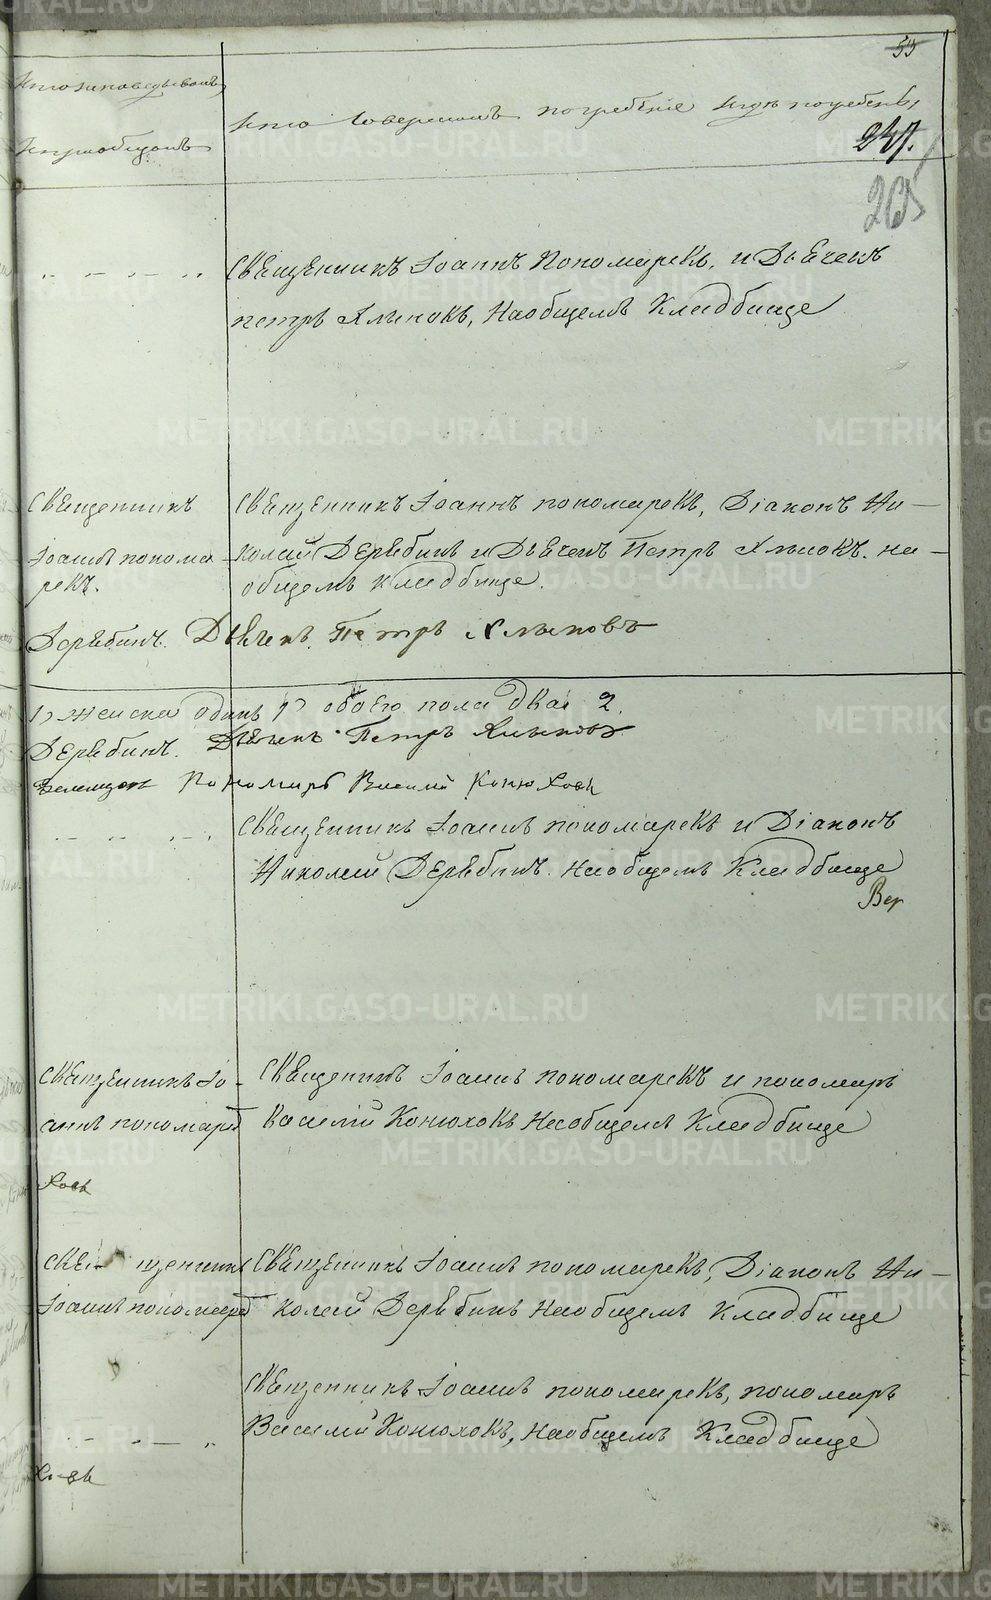 55
Кто исповедывалъ
Кто совершалъ погребеніе и гдѣ погребены,
и пріобщалъ
247.
265
Священникъ Іоаннъ Пономаревъ, и Дьячекъ
петръ Хлыновъ, На общемъ Кладбище
Священникъ
Іоаннъ понома-
ревъ.
Священникъ Іоаннъ пономаревъ, Діаконъ Ни-
колай Дерябинъ и Дьячекъ Петръ Хлыновъ. на-
общемъ кладбище.
Дерябинъ. Дьячекъ. Петръ Хлыновъ
1, женска одинъ 1, обоего пола два 2.
Дерябинъ. Дьячекъ Петръ Хлыновъ
Пономарь Василій Конюховъ
Священникъ Іоаннъ пономаревъ и Діаконъ
Николай Дерябинъ. На общемъ Кладбище
Вер
Священникъ Іо-
аннъ пономаревъ
Священникъ Іоаннъ пономаревъ и пономарь
Василій Конюховъ На общемъ Кладбище
ховъ
Священникъ
Іоаннъ пономаревъ
Священникъ Іоаннъ пономаревъ, Діаконъ Ни-
колай Дерябинъ На общемъ Кладбище
Священникъ Іоаннъ пономаревъ, пономарь
Василій Конюховъ, На общемъ Кладбище
ховъ
METRIKI.GASO-URAL.RU